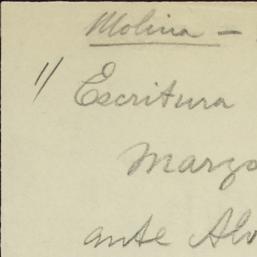 Molina -
" Escritura
Marzo
ante Alv